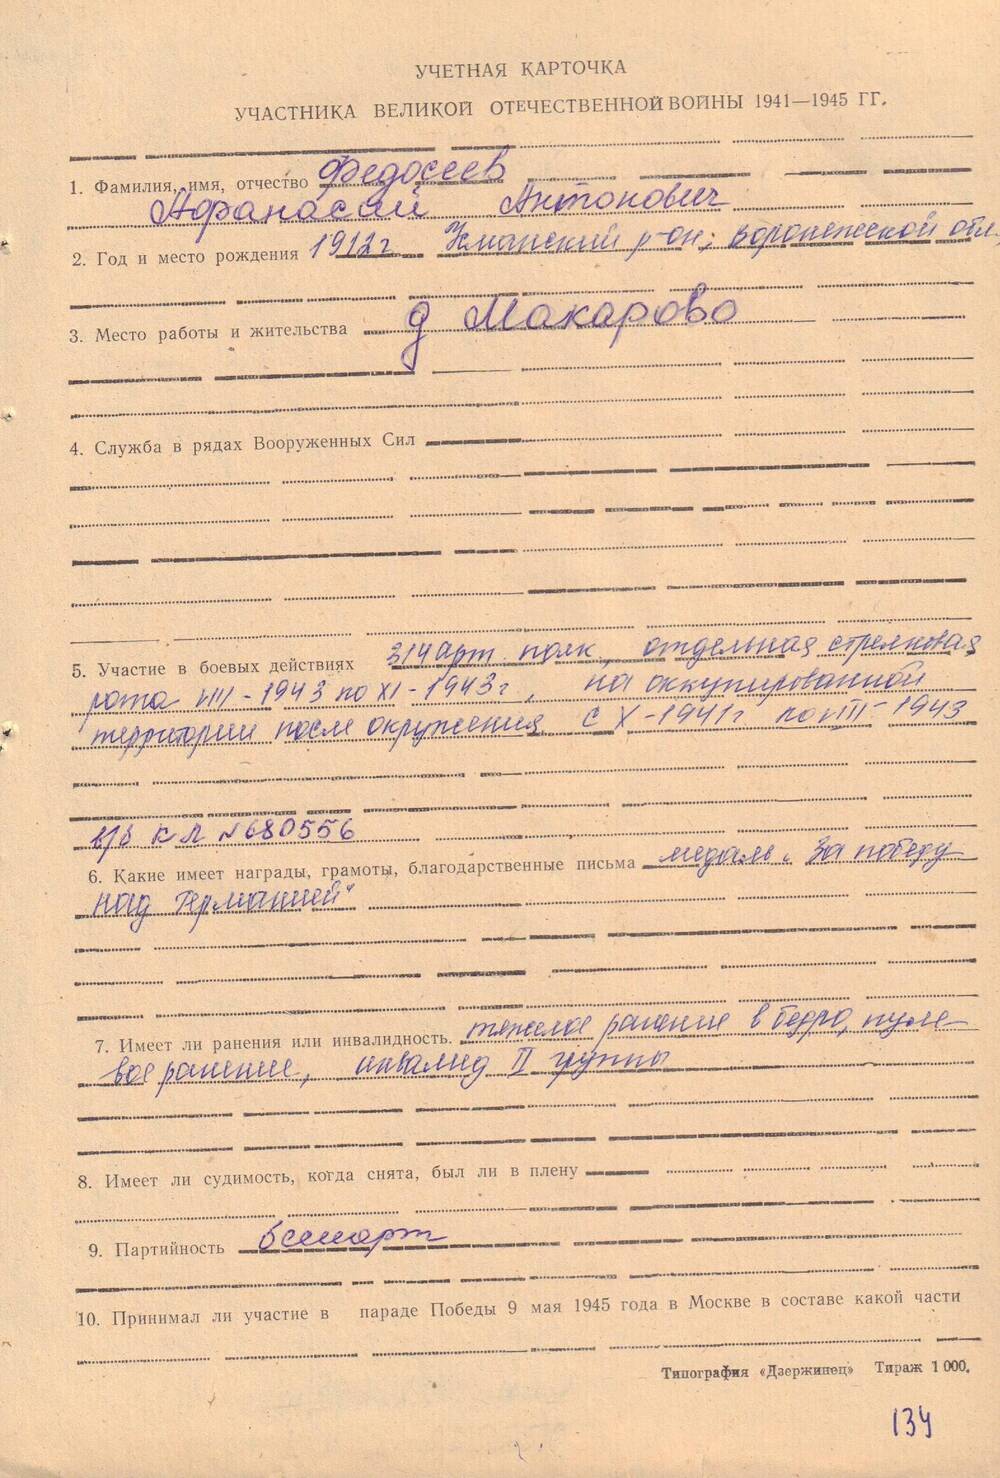 УЧЕТНАЯ КАРТОЧКА
УЧАСТНИКА ВЕЛИКОЙ ОТЕЧЕСТВЕННОЙ ВОЙНЫ 1941—1945 ГГ.
1. Фамилия, имя, отчество Федосеев
Афанасий Антонович
2. Год и место рождения 1912 г Усманский р-он, Воронежской обл.
3. Место работы и жительства д Макарово
4. Служба в рядах Вооруженных Сил
5. Участие в боевых действиях 314 арт. полк, отдельная стрелковая
рота VIII-1943 по XI-1943 г, на оккупированной
территории после окружения с X-1941 г по VIII-1943
в/б КЛ №680556
6. Какие имеет награды, грамоты, благодарственные письма медаль „За победу
над Германией"
7. Имеет ли ранения или инвалидность. тяжелое ранение в бедро, пуле-
вое ранение, инвалид II группы
8. Имеет ли судимость, когда снята, был ли в плену
9. Партийность беспарт
10. Принимал ли участие в параде Победы 9 мая 1945 года в Москве в составе какой части
Типография «Дзержинец» Тираж 1 000.
134